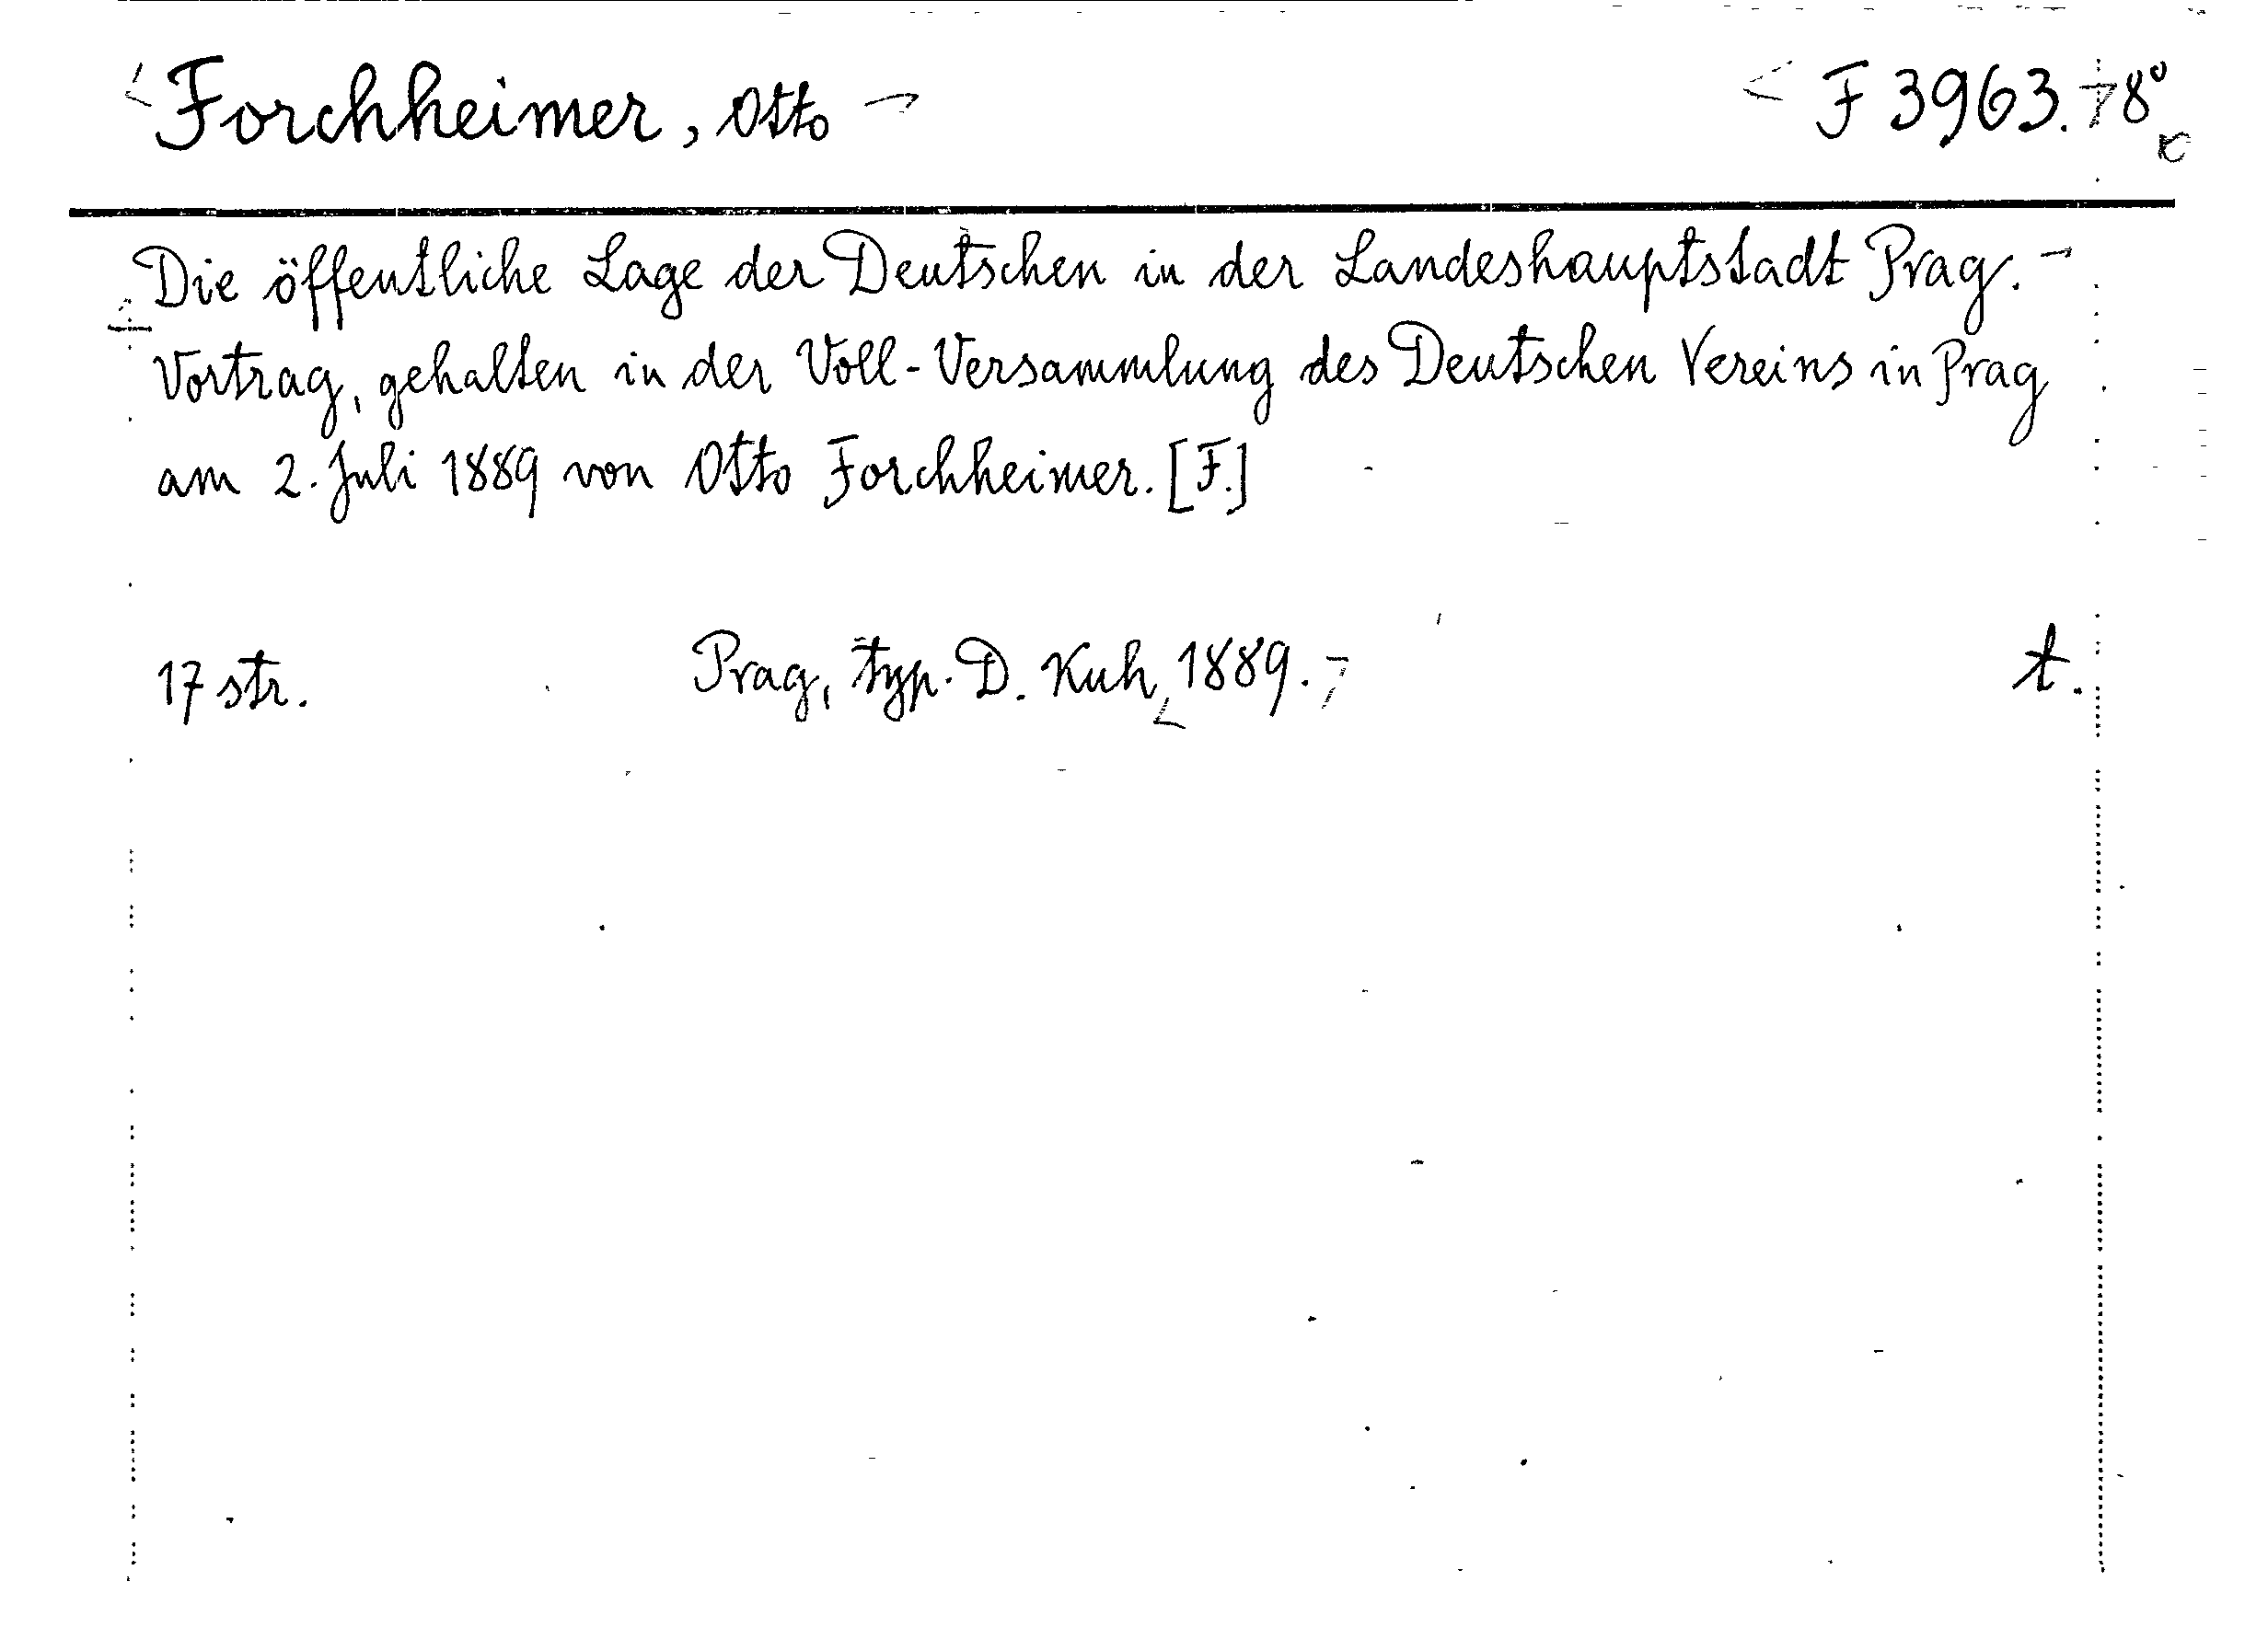 Forchheimer, Otto
F 3963. 8°
Die öffentliche Lage der Deutschen in der Landeshauptstadt Prag.
Vortrag, gehalten in der Voll-Versammlung des Deutschen Vereins in Prag
am 2. Juli 1889 von Otto Forchheimer. [F.]
17 str. Prag, typ. D. Kuh, 1889. t.